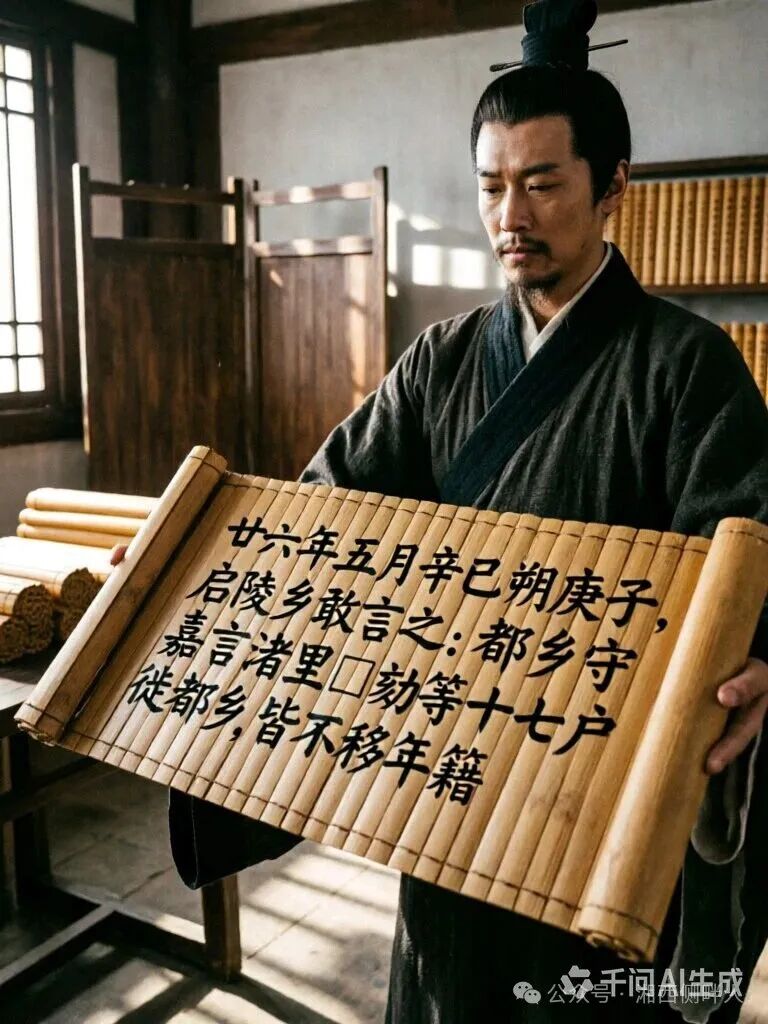 廿六年五月辛巳朔庚子，
启陵乡敢言之：都乡守
嘉言渚里□劾等十七户
徙都乡，皆不移年籍
公众号·湘西侧畔人
千问AI生成